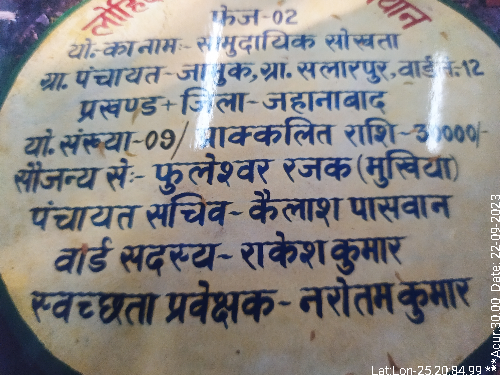 लोहिया
यान
फेज-02
यो. का नाम:- सामुदायिक सोखता
ग्रा. पंचायत- जामुक, ग्रा. सलारपुर, वार्ड नं.12
प्रखण्ड + जिला- जहानाबाद
यो. संख्या-09/ प्राक्कलित राशि- 30000/-
सौजन्य से:- फुलेश्वर रजक (मुखिया)
पंचायत सचिव- कैलाश पासवान
वार्ड सदस्य- राकेश कुमार
स्वच्छता प्रवेक्षक- नरोतम कुमार
Lat:Lon-25.20:84.99 ***Acur:30.00 Date: 22-09-2023